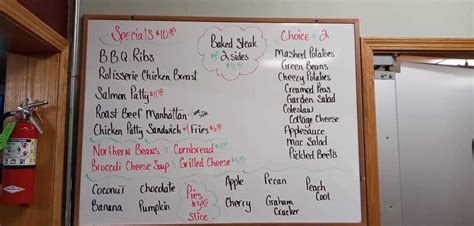 Specials $10
B.B.Q. Ribs
Rotisserie Chicken Breast
Salmon Patty $11
Roast Beef Manhattan
Chicken Patty Sandwich w/ Fries
Northern Beans & Cornbread
Broccoli Cheese Soup & Grilled Cheese
Baked Steak
2 sides
Choice 2
Mashed Potatoes
Green Beans
Cheezy Potatoes
Creamed Peas
Garden Salad
Coleslaw
Cottage Cheese
Applesauce
Mac Salad
Pickled Beets
Coconut Chocolate
Banana Pumpkin
Pies
Slice
Apple Pecan Peach
Cherry Graham Cool
Cracker